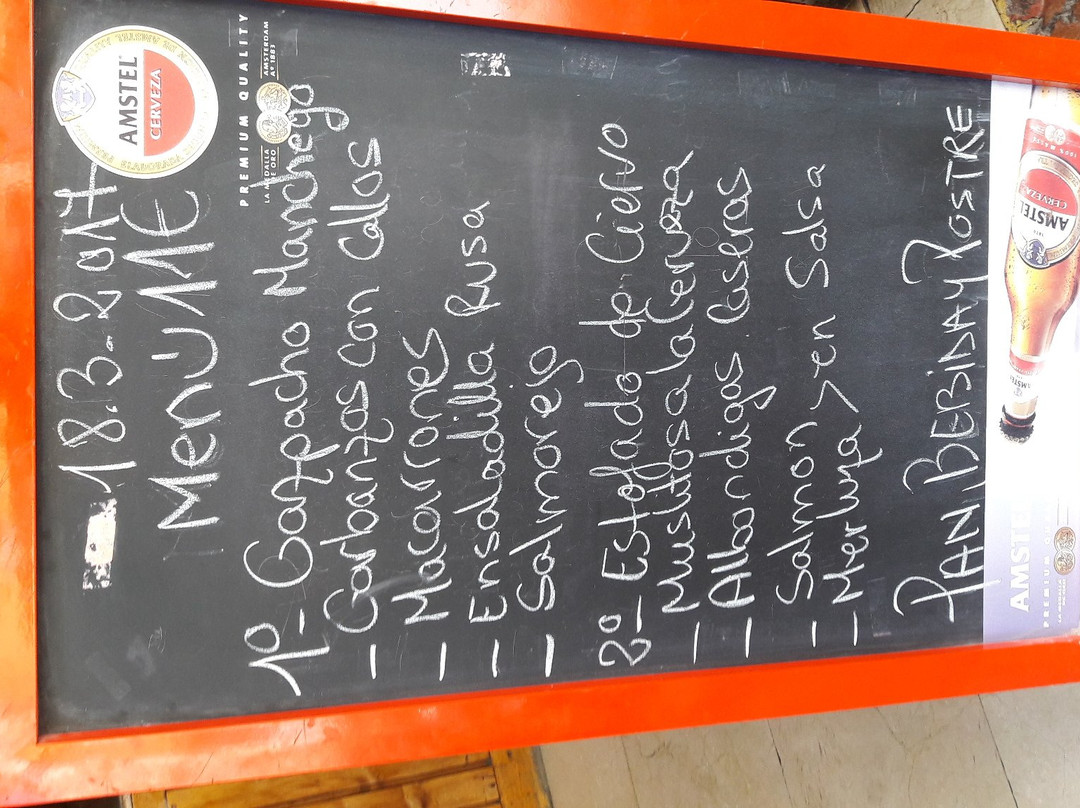 AMSTEL
CERVEZA
PREMIUM QUALITY
LA MEDALLA DE ORO
AMSTERDAM Aº 1883
18.3-2017
Menu 11€
1º- Gazpacho Manchego
- Garbanzos con Callos
- Macarrones
- Ensaladilla Rusa
- Salmorejo
2º- Estofado de Ciervo
- Muslitos a la Cerveza
- Albondigas Caseras
- Salmon > en Salsa
- Merluza
PAN BEBIDA Y POSTRE
AMSTEL
CERVEZA
AMST
PREMIUM